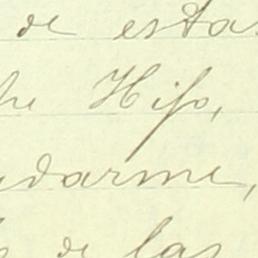 de esta
Hijo,
ndarme,
de las